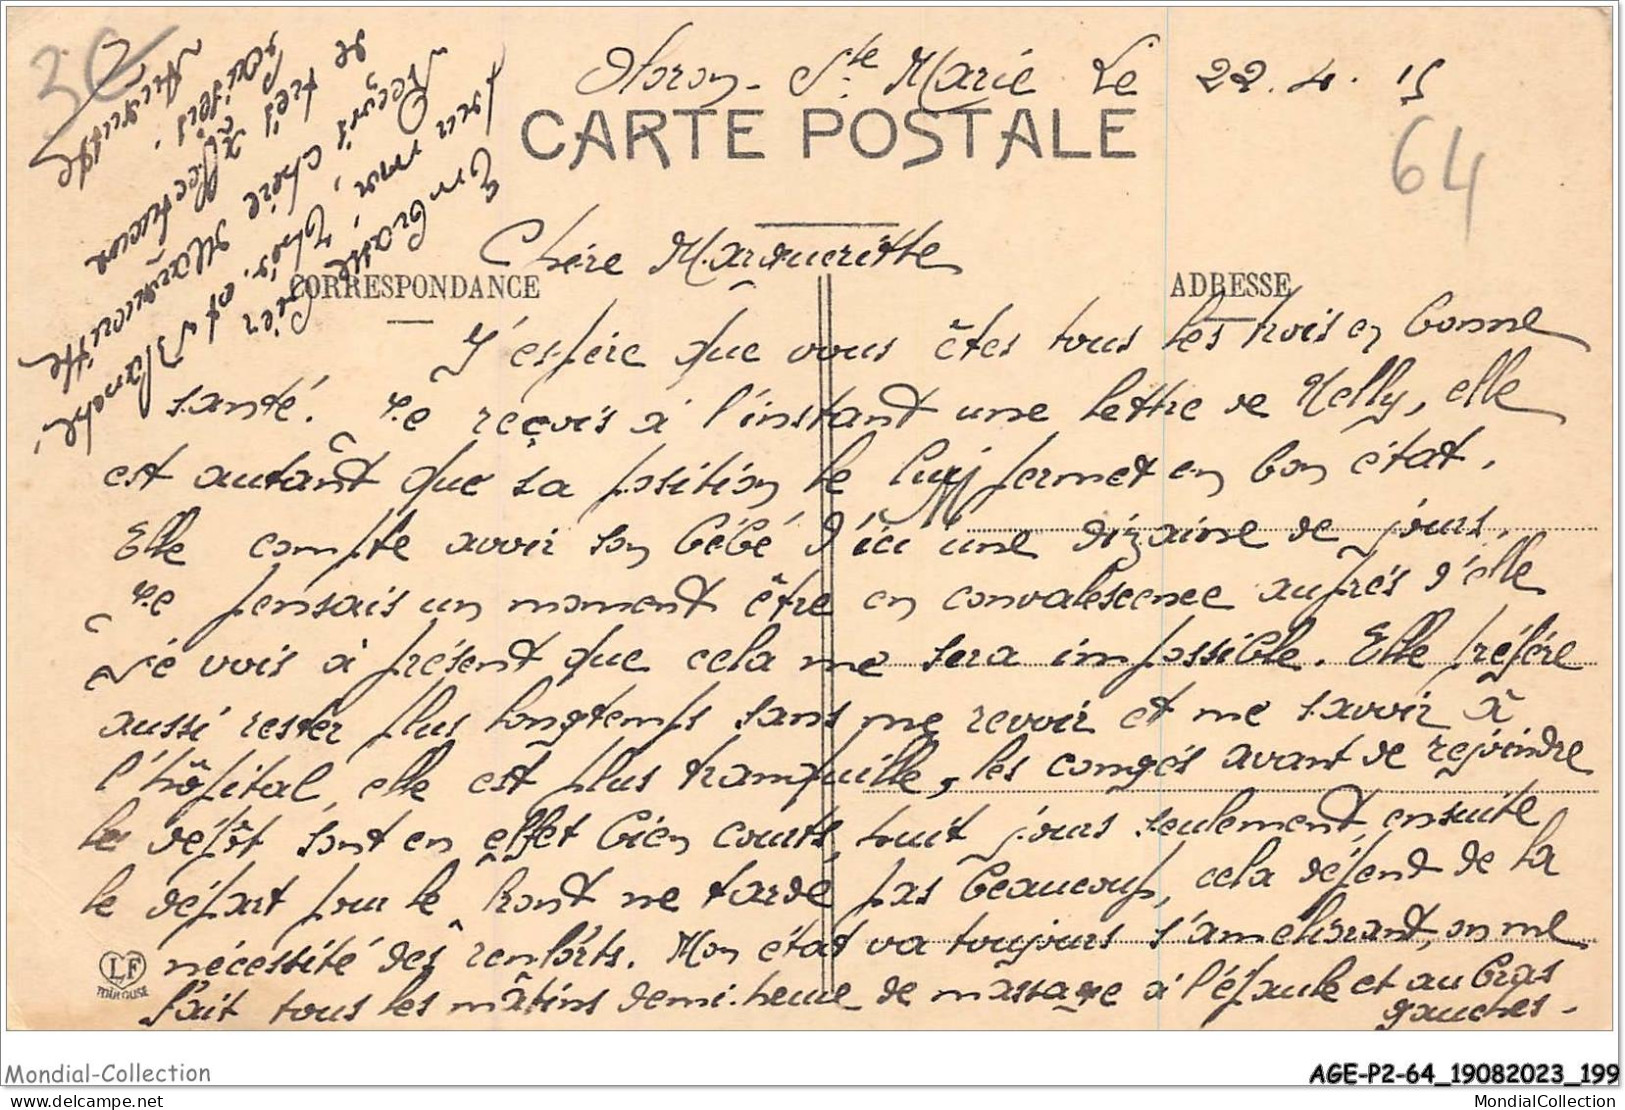 Oloron - Ste Marie Le 22.4.15
CARTE POSTALE
64
Chère Margueritte
CORRESPONDANCE
ADRESSE
J'espère que vous êtes tous les trois en bonne
santé. Je reçois à l'instant une lettre de Nelly, elle
est autant que sa position le lui permet en bon état.
Elle compte avoir son bébé d'ici une dizaine de jours.
Je pensais un moment être en convalescence auprès d'elle
Je vois à présent que cela me sera impossible. Elle préfère
aussi rester plus longtemps sans me revoir et me savoir à
l'hôpital, elle est plus tranquille, les congés avant de rejoindre
le dépôt sont en effet bien courts, huit jours seulement, ensuite
le départ pour le front ne tarde pas beaucoup, cela dépend de la
nécessité des renforts. Mon état va toujours s'améliorant, on me
fait tous les matins demi-heure de massage à l'épaule et au bras
gauches -
LF
TOULOUSE
Embrasse bien
pour moi, Théo. et Blanche.
Reçois chère Margueritte
très affectueux
baisers
Auguste
Mondial-Collection
AGE-P2-64_19082023_199
delcampe.net
MondialCollection